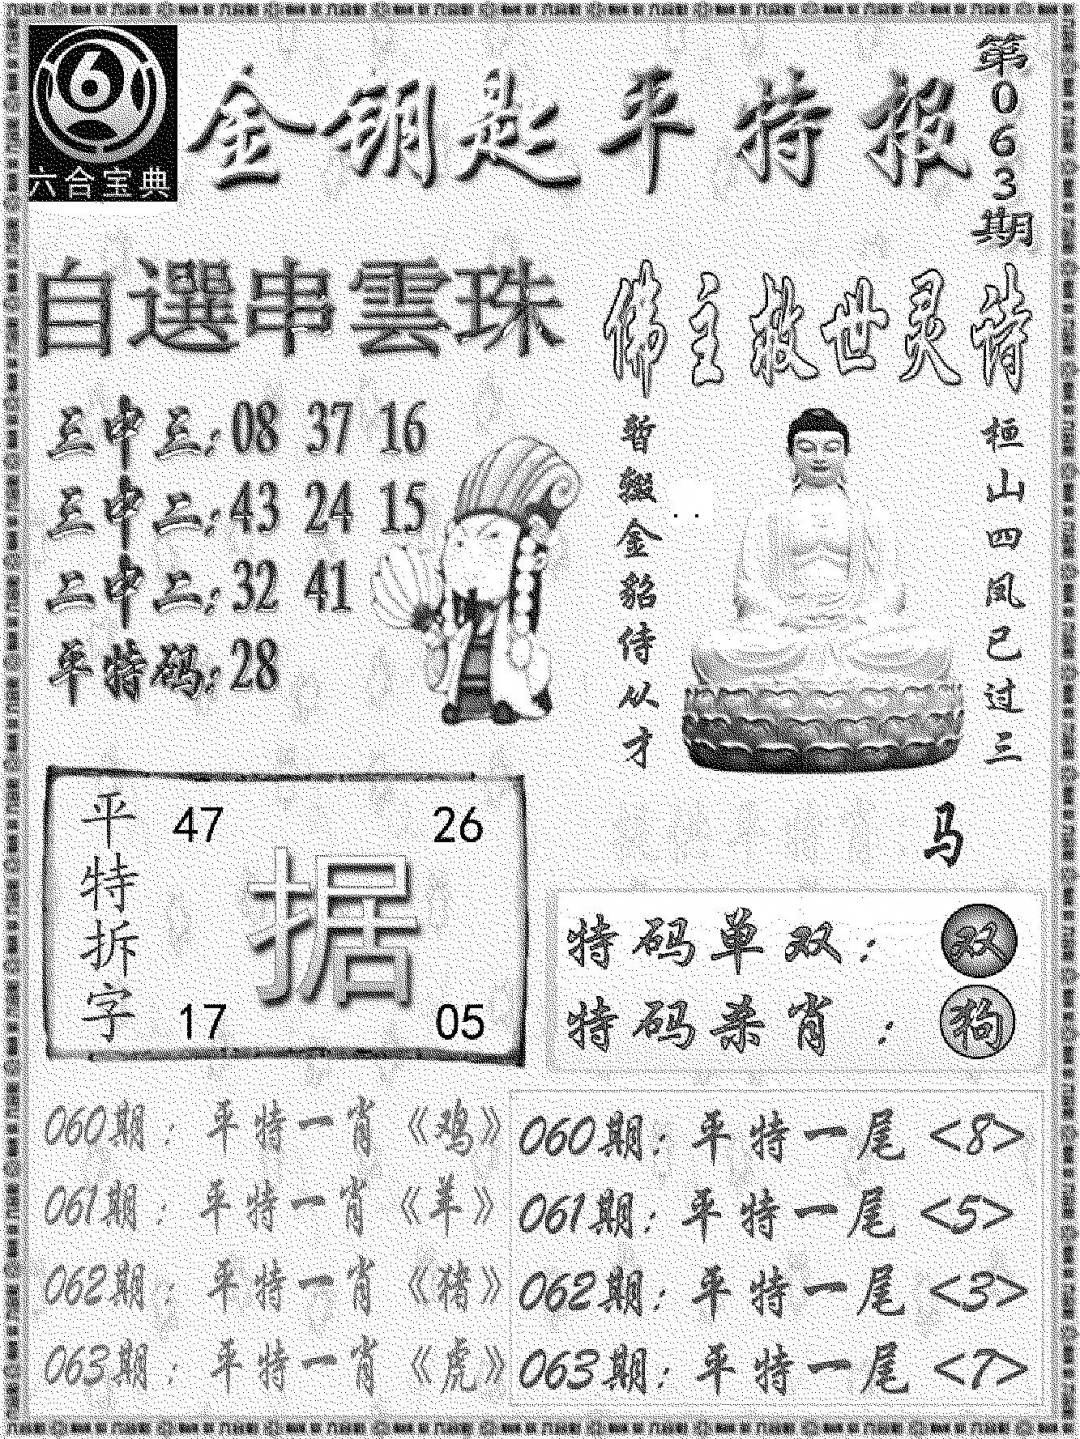 六合宝典
金钥匙平特报
第063期
自選串雲珠
三中三:08 37 16
三中二:43 24 15
二中二:32 41
平特码:28
佛主救世灵诗
桓山四凤已过三
暂辍金貂侍从才
马
平特拆字
47 26
据
17 05
特码单双:双
特码杀肖:狗
060期:平特一肖《鸡》
061期:平特一肖《羊》
062期:平特一肖《猪》
063期:平特一肖《虎》
060期:平特一尾<8>
061期:平特一尾<5>
062期:平特一尾<3>
063期:平特一尾<7>